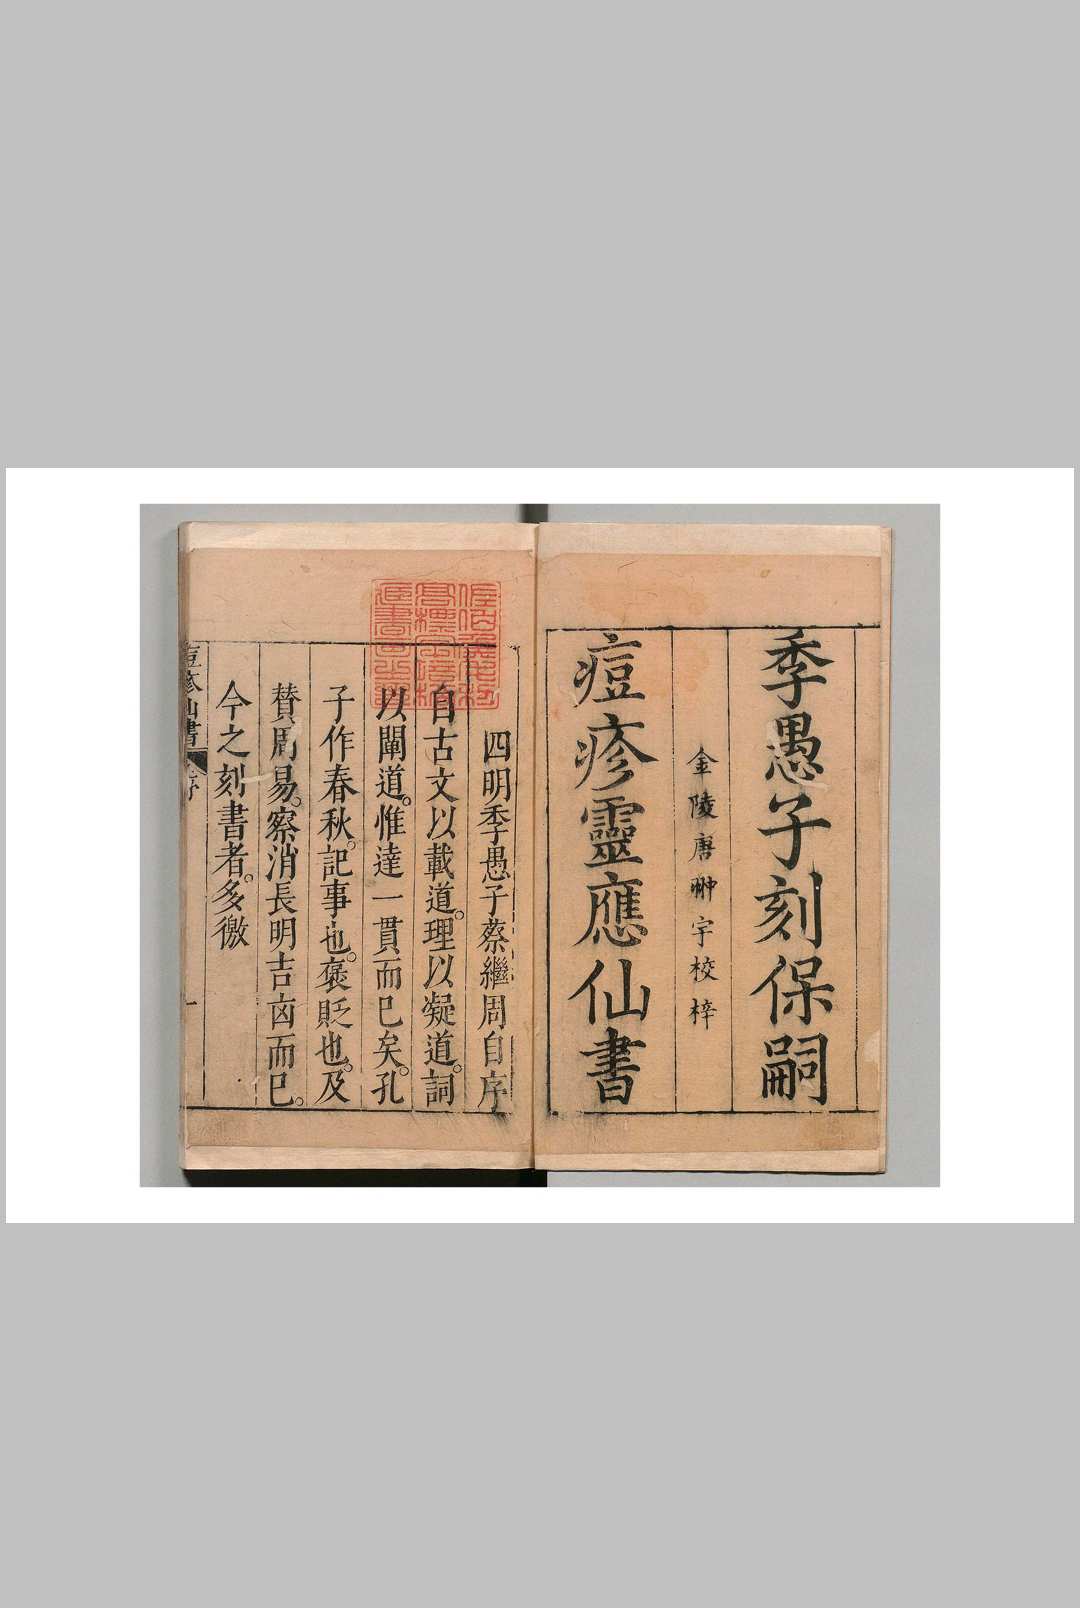 季愚子刻保嗣
金陵唐翀宇校梓
痘疹靈應仙書
四明季愚子蔡繼周自序
自古文以載道。理以凝道。詞
以闡道。惟達一貫而已矣。孔
子作春秋。記事也。褒貶也。及
賛周易。察消長明吉凶而已。
今之刻書者。多徼
痘疹仙書 序 一
佐伯矦毛利
高標字培松
臧書畫之印